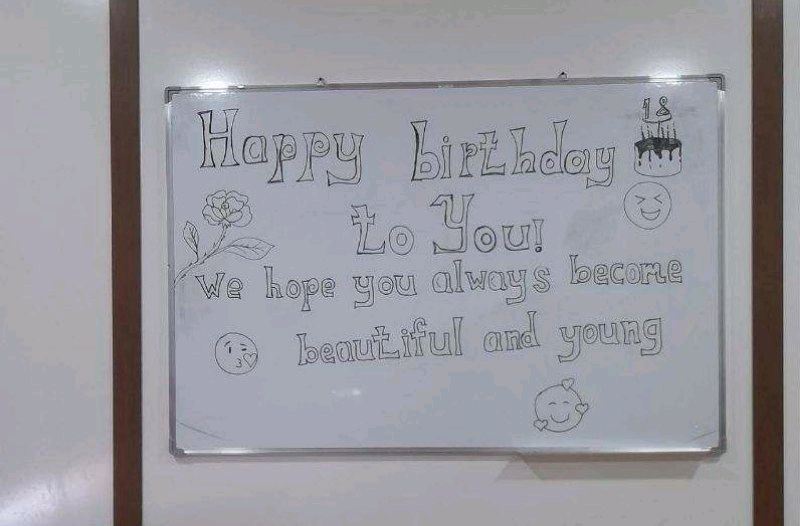 18
Happy birthday
to You!
We hope you always become
beautiful and young